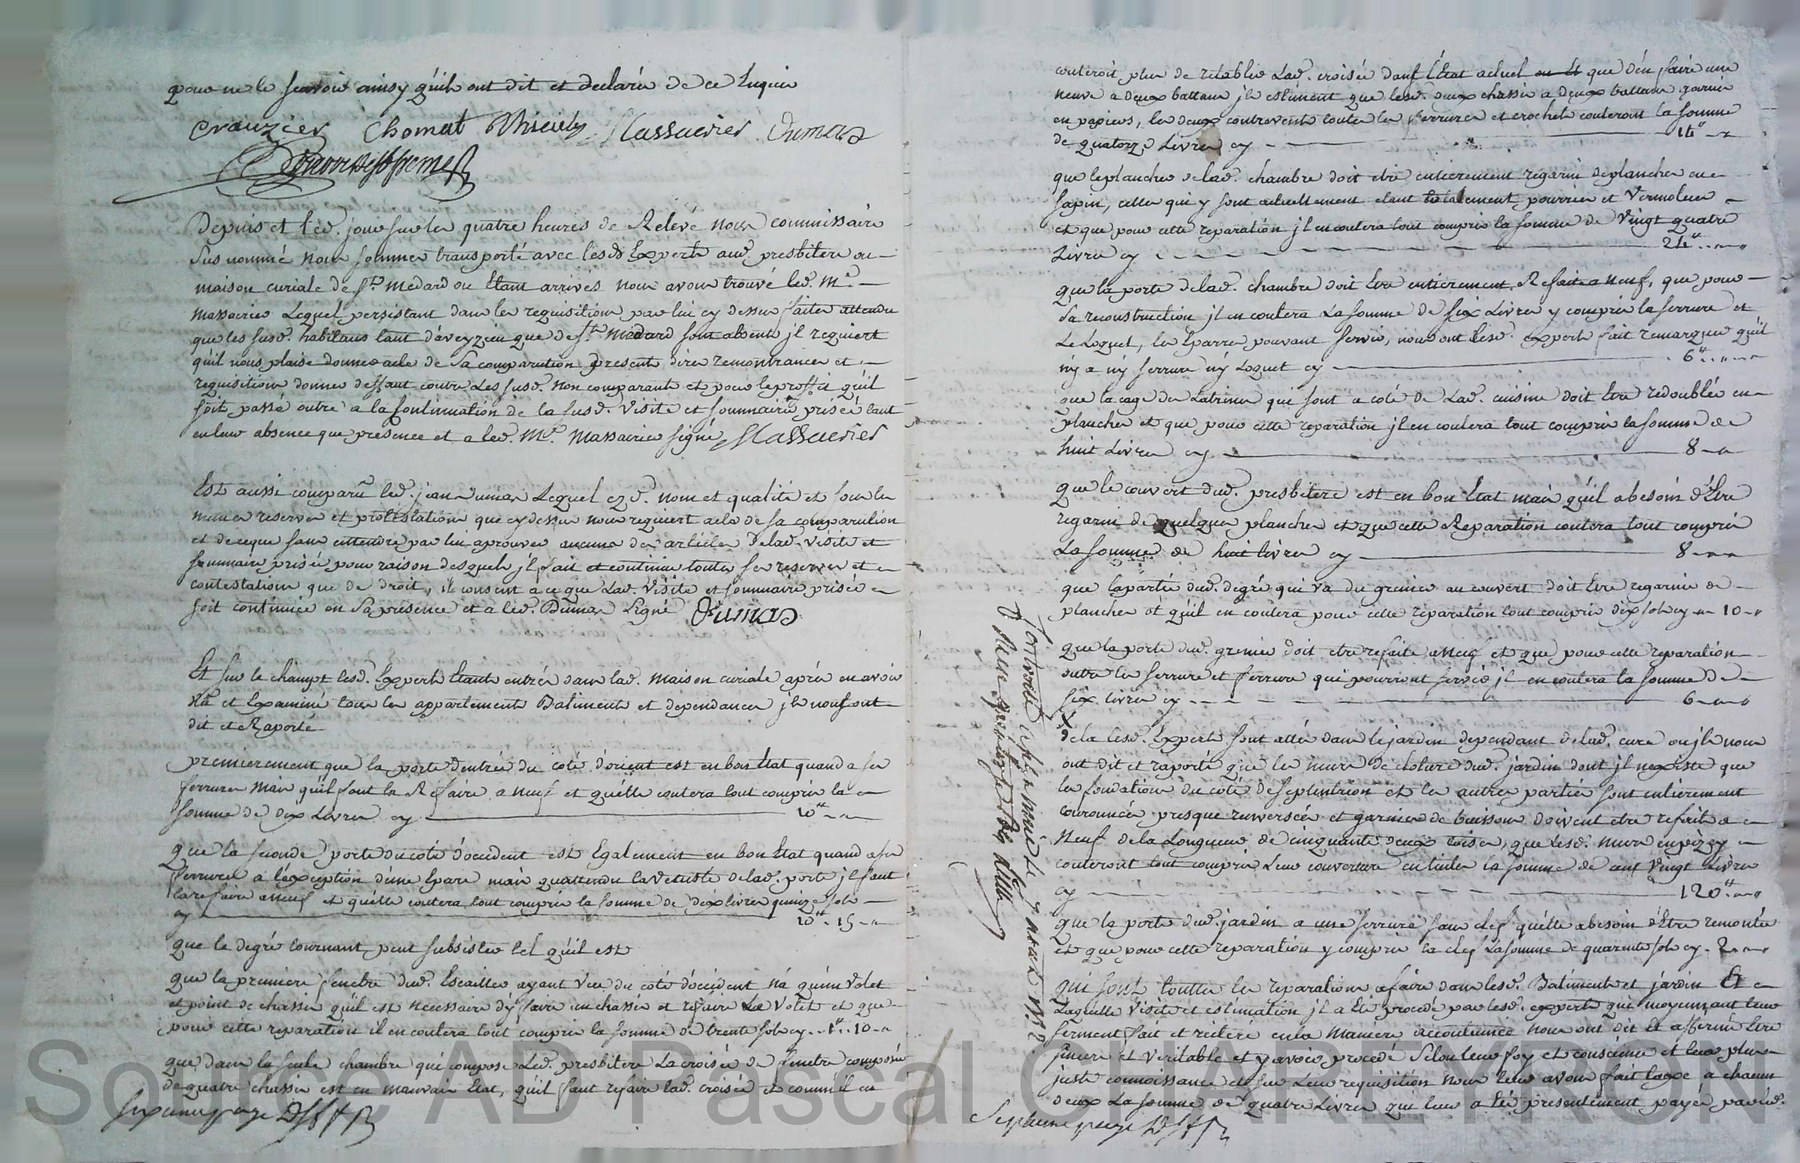 pour ne le scavoir ainsy qu'ils ont dit et declaré de ce enquis
Crouzier Chomat Massacrier Dumas
Depuis et led. jour sur les quatre heures de Relevé nous commissaire
sus nommé nous sommes transporté avec lesd Experts aud. presbitere ou
maison curiale de St Medard ou Etant arrivés nous avons trouvé led. Mr
massacrier Lequel persistant dans les requisitions par lui cy dessus faites attendu
que les susd. habitans tant d'aveyzieu que de St Medard sont absents jl requiert
qu'il nous plaise donner acte de sa comparution presente dires remontrances et
requisitions donner deffaut contre Les susd. non comparants et pour le proffit qu'il
soit passé outre a la continuation de la susd. visite et sommaire prisée tant
en leur absence que presence et a led. Mr. Massacrier signé Massacrier
Est aussi comparu led. jean dumas Lequel ezd. nom et qualité et sous les
memes reserves et protestations que cy dessus nous requiert acte de sa comparution
et de ce que sans entendre par lui aprouver aucuns des articles de lad. visite et
sommaire prisée pour raison desquels jl fait et continue toutes ses reserves et
contestations que de droit, il consent a ce que Lad. visite et sommaire prisée
soit continuée en sa presence et a led. Dumas Signé Dumas
Et sur le champt lesd. Experts Etants entrés dans lad. maison curiale après en avoir
vû et Examiné tous les appartements Batiments et dependances jls nous ont
dit et Raporté
premierement que la porte d'entrée du coté d'orient est en bon Etat quand a ses
ferrures mais qu'il faut la Refaire a neuf et qu'elle coutera tout compris la
somme de dix Livres cy 10tt
que la seconde porte du coté d'occident est Egalement en bon Etat quand a ses
ferrures a l'exception d'une Epare mais qu'attendu la vetusté de lad. porte jl faut
la refaire a neuf et qu'elle coutera tout compris la somme de dix livres quinze sols
cy 10tt 15
que le degré tournant peut subsister tel qu'il est
que la premiere fenetre dud. Escailler ayant vue du coté d'occident n'a qu'un volet
et point de chassis qu'il est necessaire d'y faire un chassis et refaire Le volet et que
pour cette reparation il en coutera tout compris la somme de trente sols cy 1tt 10
que dans la seule chambre qui compose Led. presbitere La croisée de fenetre composée
de quatre chassis est en mauvais Etat, qu'il faut refaire lad. croisée et comm'il en
sixieme page
couteroit plus de retablir Lad. croisée dans l'Etat actuel que d'en faire une
neuve a deux battans jls estiment que lesd. deux chassis a deux battans garnis
en papiers, les deux contrevents toutes les ferrures et crochets couteront la somme
de quatorze Livres cy 14tt
que le plancher de lad. chambre doit etre entierement regarni de planches en
sapin, celles qui y sont actuellement etant totalement pourries et vermolues
et que pour cette reparation jl en coutera tout compris la somme de vingt quatre
Livres cy 24tt
que la porte de lad. chambre doit Etre entierement Refaite a neuf, que pour
sa reconstruction jl en coutera La somme de six Livres y compris la serrure et
Le Loquet, les Eparres pouvant servir, nous ont lesd. experts fait remarquer qu'il
n'y a ny serrure ny Loquet cy 6tt
que la cage des Latrines qui sont a coté de Lad. cuisine doit Etre redoublée en
planches et que pour cette reparation jl en coutera tout compris la somme de
huit Livres cy 8
que le couvert dud. presbitere est en bon Etat mais qu'il a besoin d'Etre
regarni de quelques planches et que cette Reparation coutera tout compris
La somme de huit livres cy 8
que la partie dud. degré qui va du grenier au couvert doit Etre regarnie de
planches et qu'il en coutera pour cette reparation tout compris dix sols cy 10
que la porte dud. grenier doit etre refaite a neuf et que pour cette reparation
outre les serrure et ferrure qui pourront servir jl en coutera la somme de
six livres cy 6
de la lesd. Experts sont allés dans le jardin dependant de lad. cure ou jls nous
ont dit et raporté que les murs de cloture dud. jardin dont jl n'existe que
les fondations du coté de septentrion et les autres parties sont entierement
couronnées presque renversées et garnies de buissons doivent etre refaits a
Neuf de la Longueur de cinquante deux toises, que Lesd. murs en pizey
couteroit tout compris Leur couverture en tuiles la somme de cent vingt Livres
cy 120tt
que la porte dud. jardin a une serrure sans clef qu'elle a besoin d'Etre remontée
et que pour cette reparation y compris la clef La somme de quarente sols cy 2
qui sont touttes les reparations a faire dans lesd. Batiments et jardin Et
Laquelle visite et estimation jl a Eté procedé par lesd. experts qui moyennant leur
serment fait et reiteré en la maniere accoutumée Nous ont dit Et affirmé Etre
sincere et veritable et y avoir procedé selon leur foy et conscience et leur plus
juste connoissance et sur Leur requisition nous leur avons fait taxe a chacun
deux La somme de quatre Livres qui leur a Eté presentement payée par led.
Septieme page
Source AD Pascal CHAREYRON